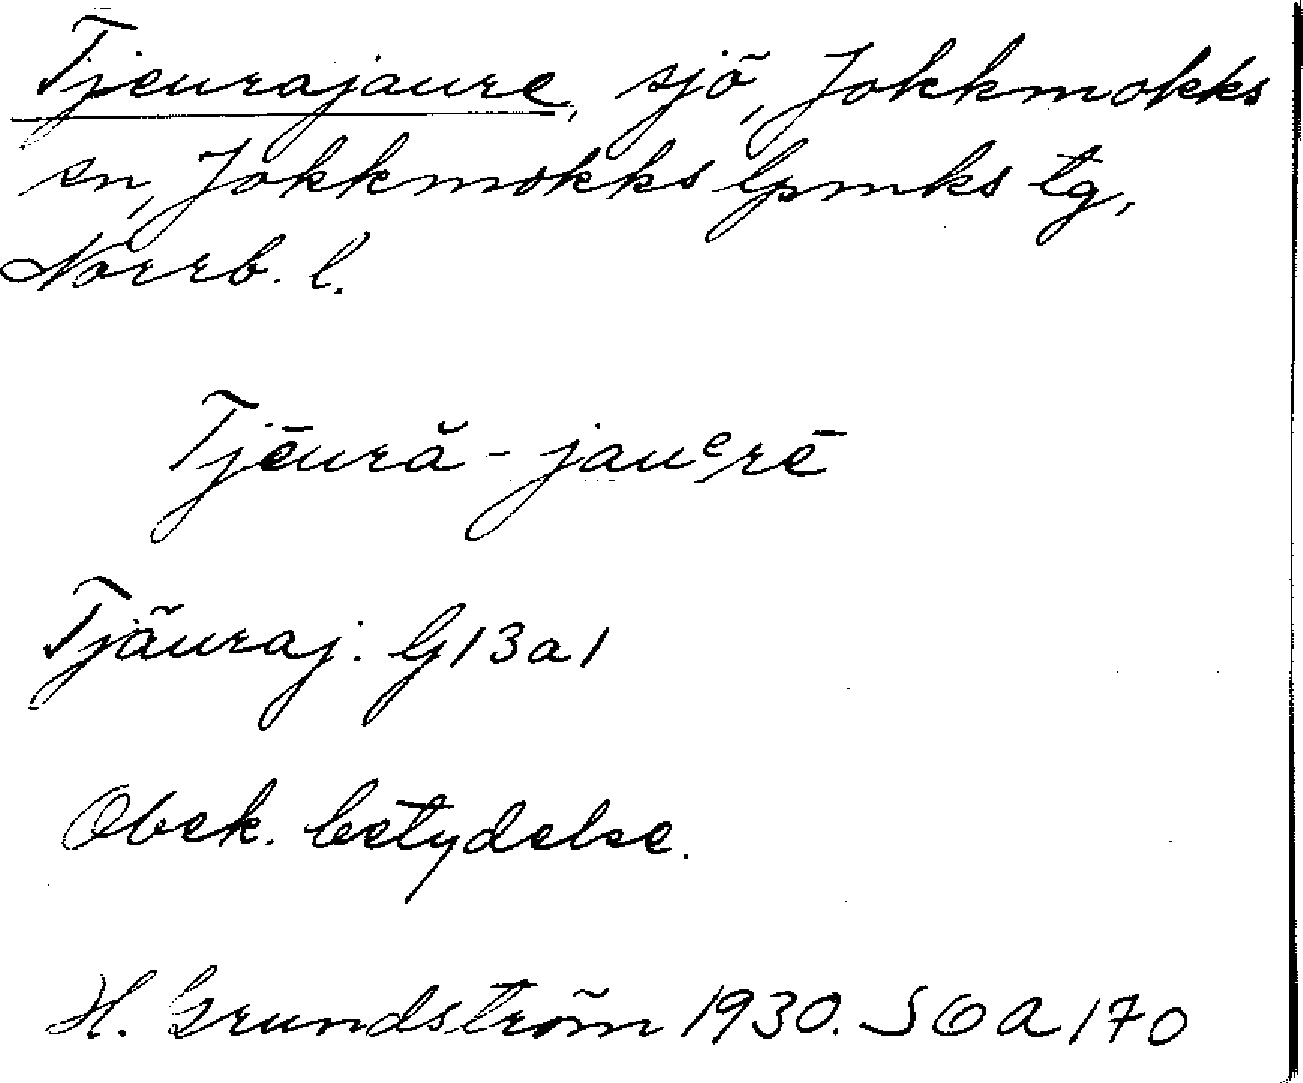 Tjeurajaure, sjö, Jokkmokks
sn, Jokkmokks lpmks tg,
Norrb. l.
Tjēură - jauᵉrē
Tjäuraj. G13a1
Obek. betydelse.
H. Grundström 1930. SOA 170